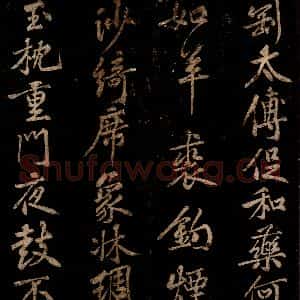 劉太傅促和藥何
如羊裘釣煙
沙綺席象牀琱
玉枕重門夜鼓不
Shufawang.CN